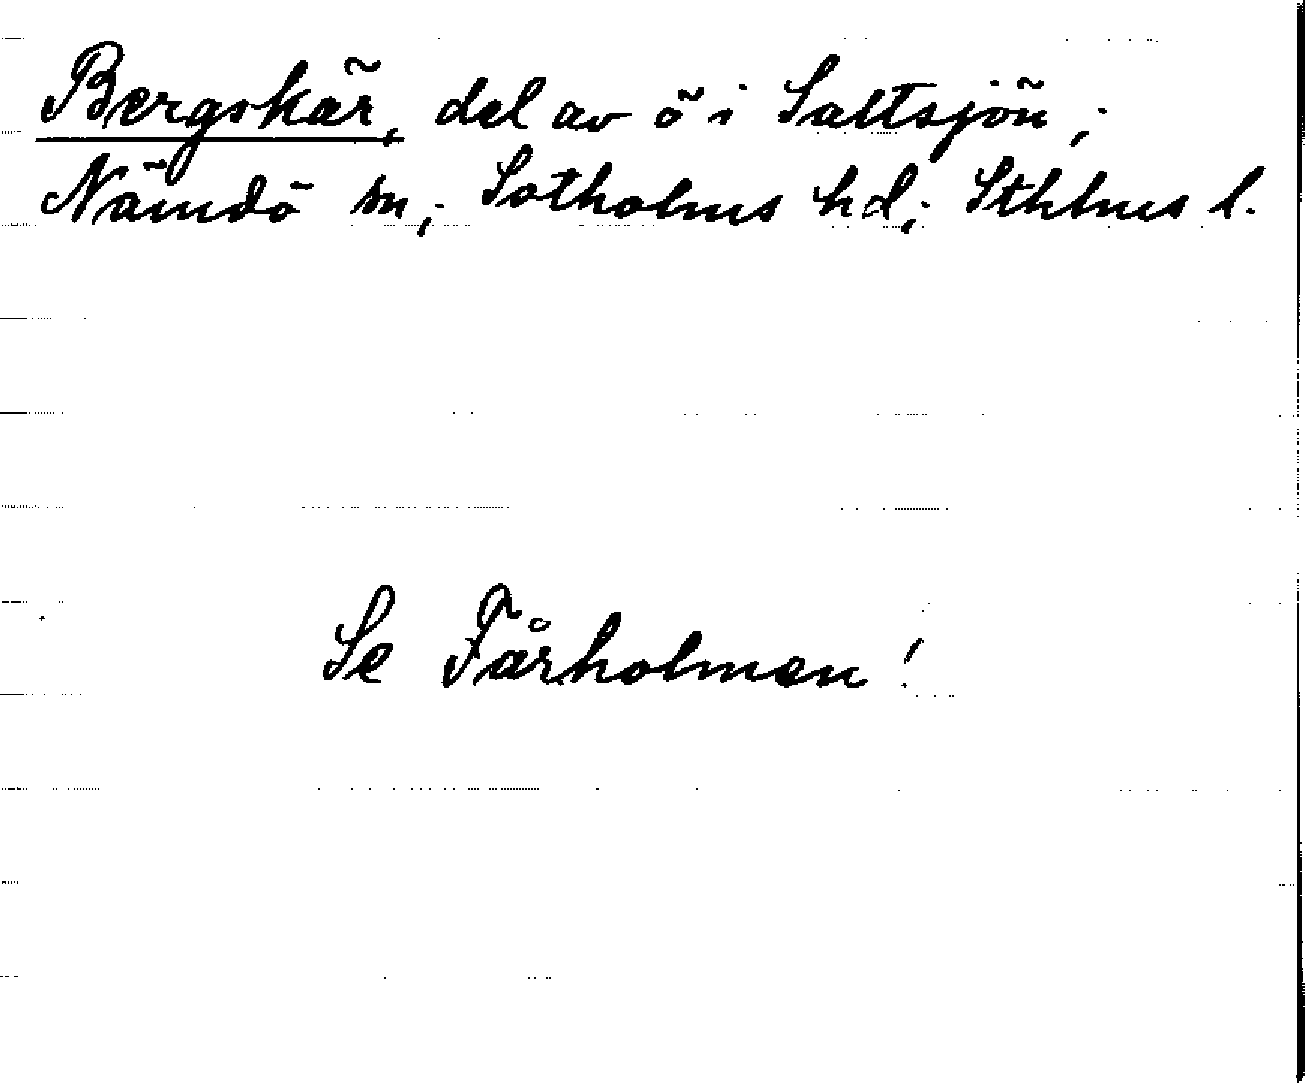 Bergskär, del av ö i Saltsjön;
Nämdö sn; Sotholms hd; Sthlms l.
Se Fårholmen!